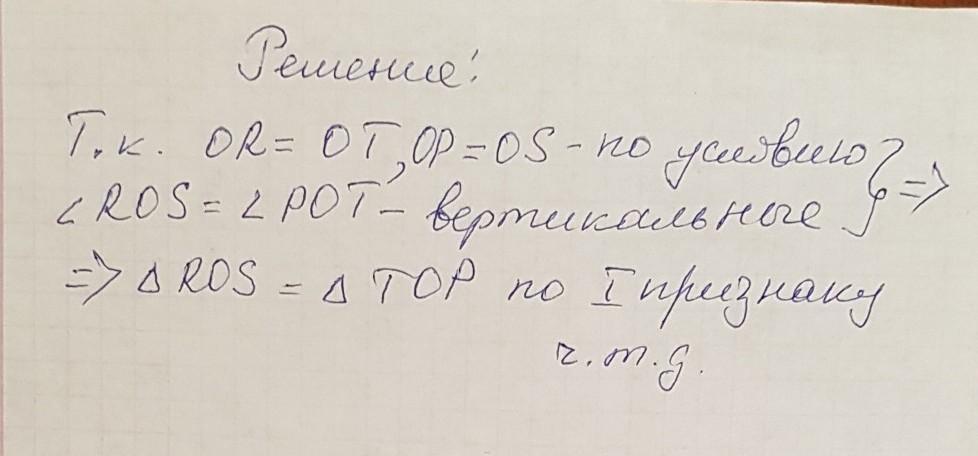 Решение:
Т.к. OR = OT, OP = OS - по условию } =>
∠ROS = ∠POT - вертикальные
=> Δ ROS = Δ TOP по I признаку
ч.т.д.